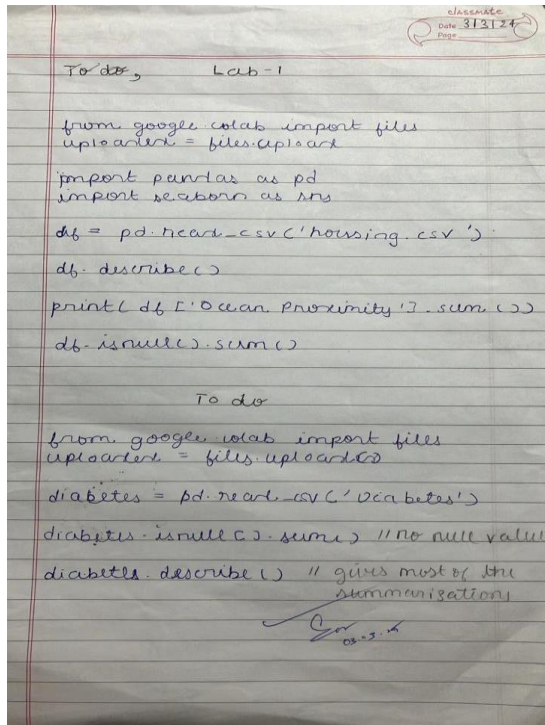 classmate
Date 3/3/24
Page
To do, Lab-1
from google.colab import files
uploaded = files.upload
import pandas as pd
import seaborn as sns
df = pd.read_csv('housing.csv')
df.describe()
print(df['Ocean Proximity'].sum())
df.isnull().sum()
To do
from google.colab import files
uploaded = files.upload()
diabetes = pd.read_csv('Diabetes')
diabetes.isnull().sum() //no null value
diabetes.describe() // gives most of the
summarizations